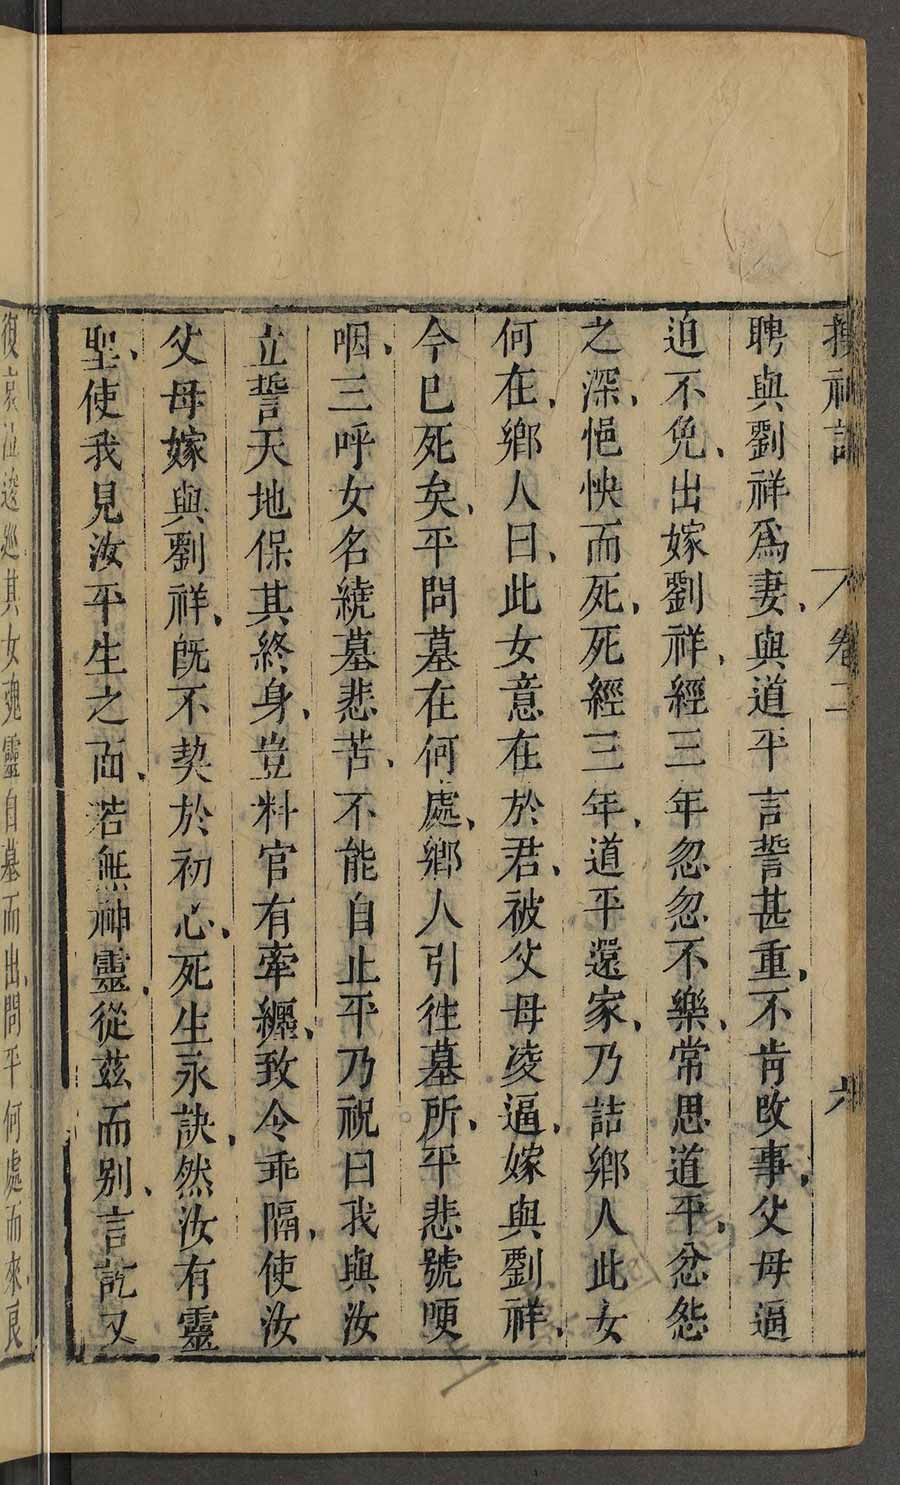 搜神記 卷二 六
聘與劉祥爲妻、與道平言誓甚重、不肯改事、父母逼
迫不免、出嫁劉祥、經三年忽忽不樂、常思道平、忿怨
之深、悒怏而死、死經三年、道平還家、乃詰鄉人此女
何在、鄉人曰、此女意在於君、被父母凌逼、嫁與劉祥、
今已死矣、平問墓在何處、鄉人引往墓所、平悲號哽
咽、三呼女名繞墓悲苦、不能自止平乃祝曰我與汝
立誓天地保其終身、豈料官有牽纏、致令乖隔、使汝
父母嫁與劉祥、旣不契於初心、死生永訣、然汝有靈
聖、使我見汝平生之面、若無神靈、從茲而別、言訖又
復哀泣逡巡其女魂靈自墓而出問平何處而來良